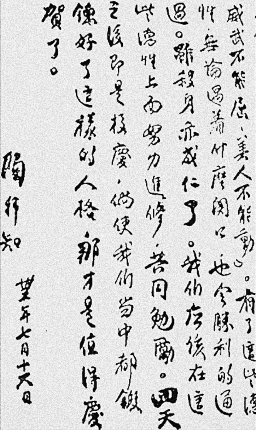 威武不能屈，美人不能動』。有了這些德
性，無論遇着什麼関口，也会勝利的通
過。雖殺身亦成仁了。我们应该在這
些德性上面努力進修，共同勉勵。四天
之後即是校慶，倘使我们当中都鍛
鍊好了這樣的人格，那才是值得慶
賀了。
陶行知
卅五年七月十六日